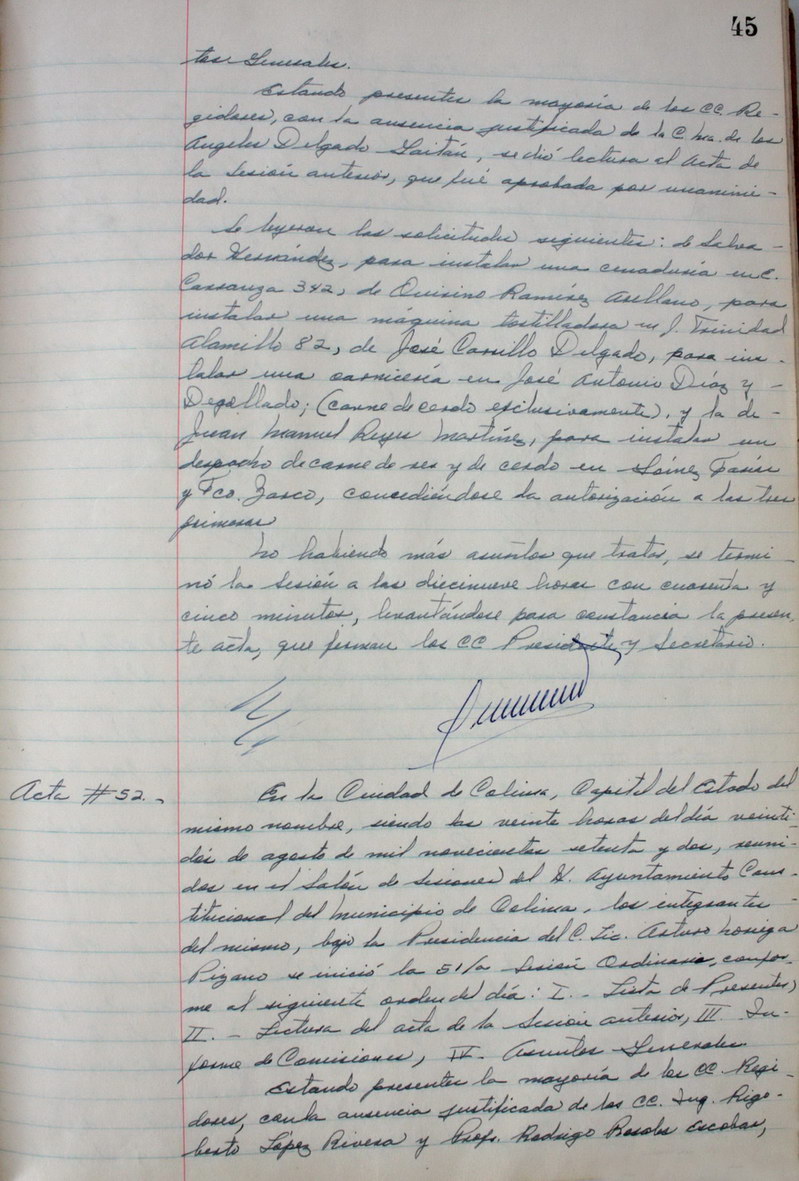 45
tos Generales.
Estando presentes la mayoría de los CC. Re-
gidores, con la ausencia justificada de la C. Ma. de los
Angeles Delgado Gaitán, se dió lectura al Acta de
la Sesión anterior, que fué aprobada por unanimi-
dad.
Se leyeron las solicitudes siguientes: de Salva-
dor Hernández, para instalar una cenaduría en C.
Carranza 342, de Quirino Ramírez Arellano, para
instalar una máquina tortilladora en J. Trinidad
Alamillo 82, de José Carrillo Delgado, para ins-
talar una carnicería en José Antonio Díaz y -
Degollado; (carne de cerdo exclusivamente), y la de -
Juan Manuel Reyes Martínez, para instalar un
despacho de carne de res y de cerdo en Gómez Farías
y Fco. Zarco, concediéndose la autorización a las tres
primeras
No habiendo más asuntos que tratar, se termi-
nó la Sesión a las diecinueve horas con cuarenta y
cinco minutos, levantándose para constancia la presen-
te acta, que firman los CC Presidente y Secretario.
Acta #52.-
En la Ciudad de Colima, Capital del Estado del
mismo nombre, siendo las veinte horas del día veinti-
dós de agosto de mil novecientos setenta y dos, reuni-
dos en el Salón de Sesiones del H. Ayuntamiento Cons-
titucional del Municipio de Colima, los integrantes -
del mismo, bajo la Presidencia del C. Lic. Arturo Noriega
Pizano se inició la 51/a Sesión Ordinaria, confor-
me al siguiente orden del día: I.- Lista de Presentes,
II.- Lectura del acta de la Sesión anterior, III- In-
forme de Comisiones, IV- Asuntos Generales
Estando presentes la mayoría de los CC. Regi-
dores, con la ausencia justificada de los CC. Ing. Rigo-
berto López Rivera y Profr. Rodrigo Rosales Escobar,